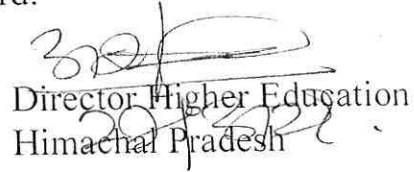 rd.
Director Higher Education
Himachal Pradesh